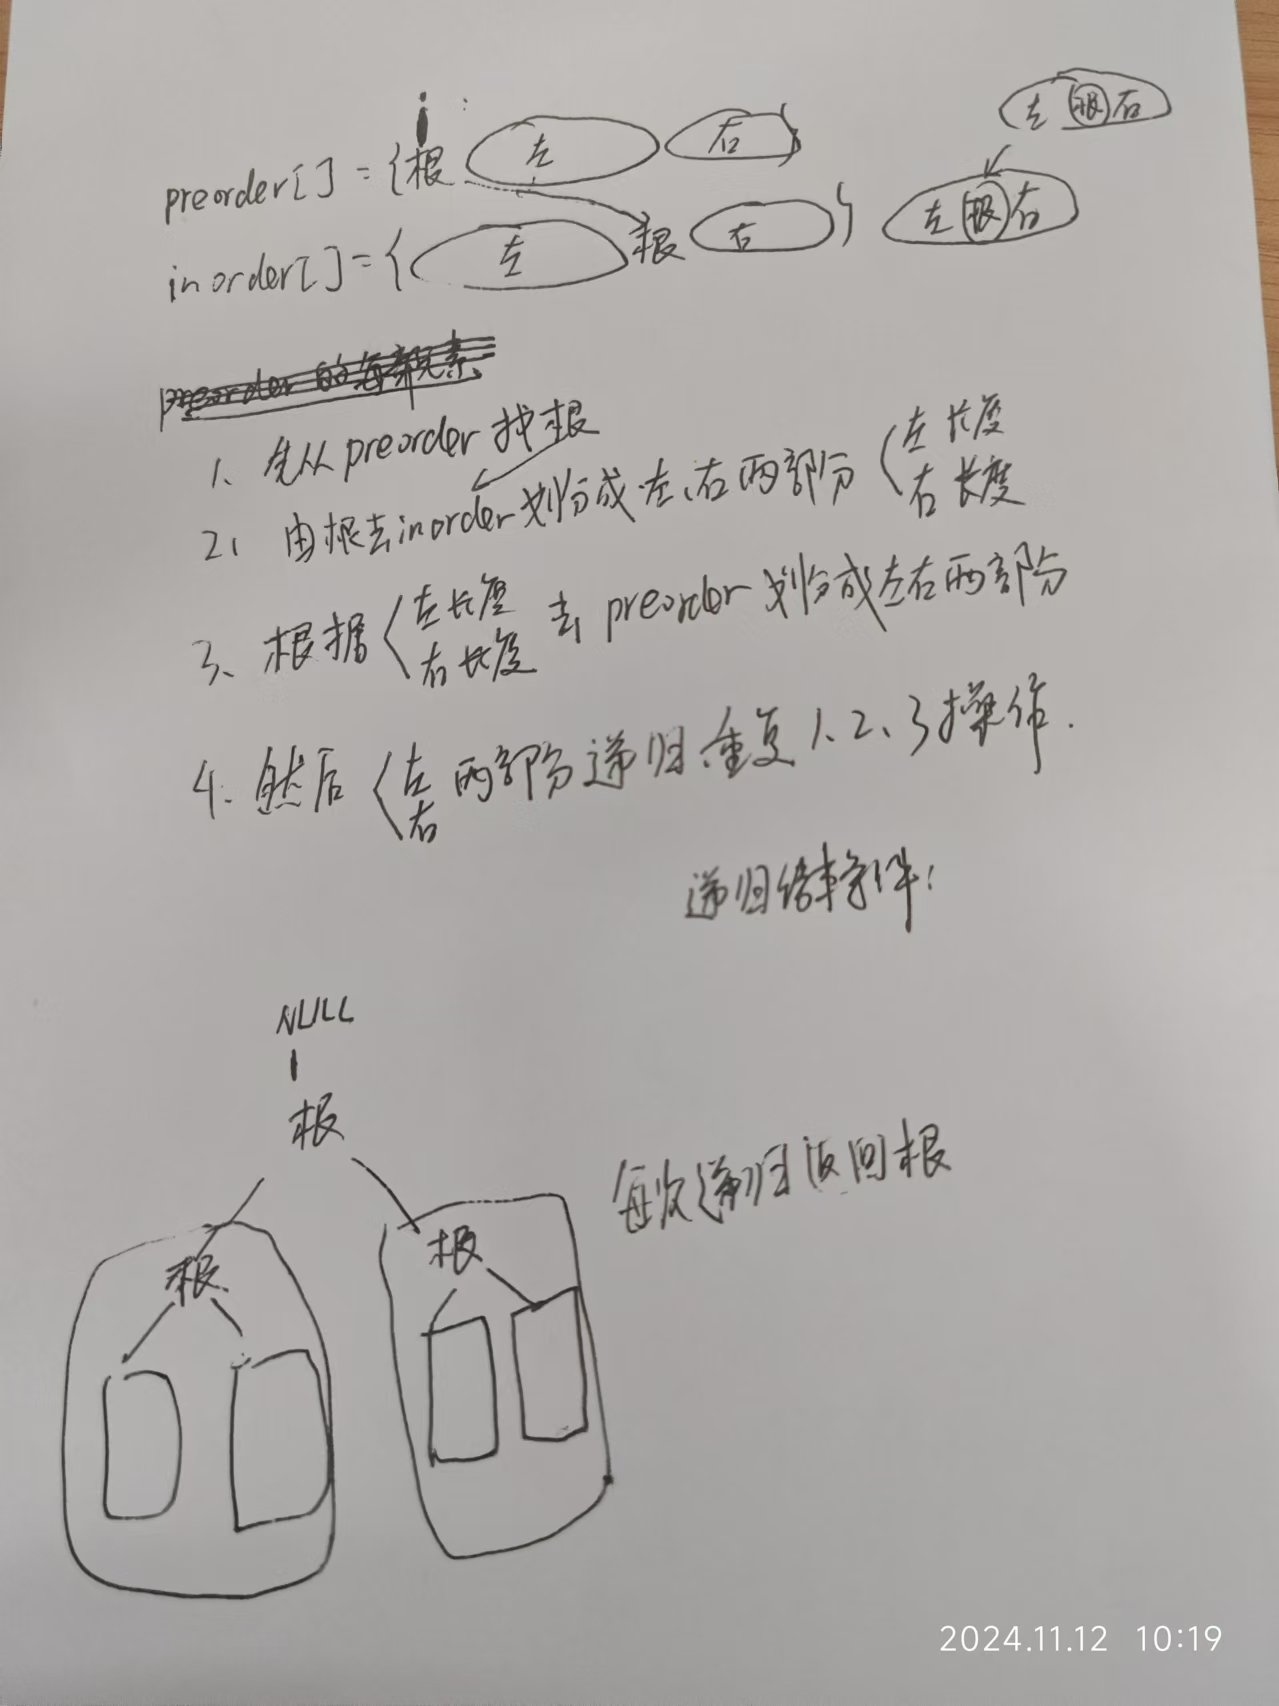 左 根 右
preorder[] = {根 左 右}
inorder[] = {左 根 右} 左 根 右
1、先从preorder找根
2、由根去inorder划分成左、右两部分 左长度 右长度
3、根据 左长度 右长度 去 preorder 划分成左右两部分
4. 然后 左 右 两部分递归重复1、2、3操作.
递归结束条件:
NULL
根
每次递归返回根
根
根
2024.11.12 10:19